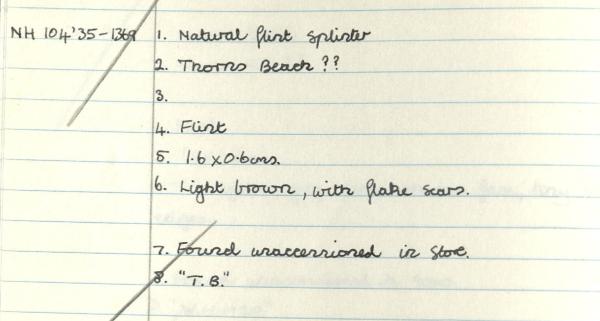 NH 104'35-1369 1. Natural flint splinter
2. Thorns Beach ??
3.
4. Flint
5. 1.6 x 0.6cms.
6. Light brown, with flake scars.
7. Found unaccessioned in store.
8. "T.B."